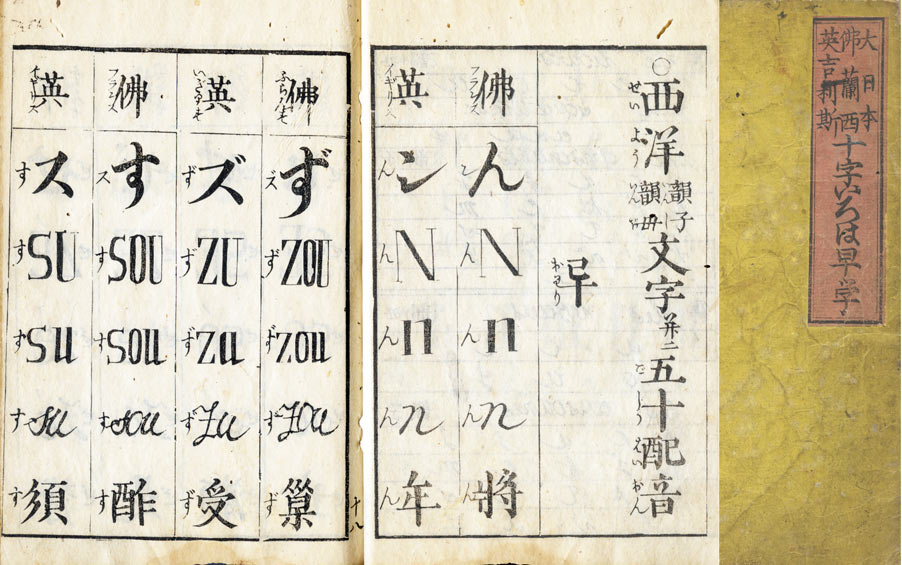 大日本
佛蘭西
英吉利斯
十字いろは早学
○西洋韻子韻母文字并ニ五十配音
せいよう
いんし
いんぼ
おわり
佛 フランス
ん ン
N ん
n ん
n ん
將 ん
英 イギリス
ン ん
N ん
n ん
n ん
年 ん
十八
佛 ふらんす
ず ズ
ZOU ず
zou ず
zou ず
巣 ず
英 いぎりす
ズ ず
ZU ず
zu ず
zu ず
受 ず
佛 フランス
す ス
SOU す
sou す
sou す
酢 す
英 イギリス
ス す
SU す
su す
su す
須 す